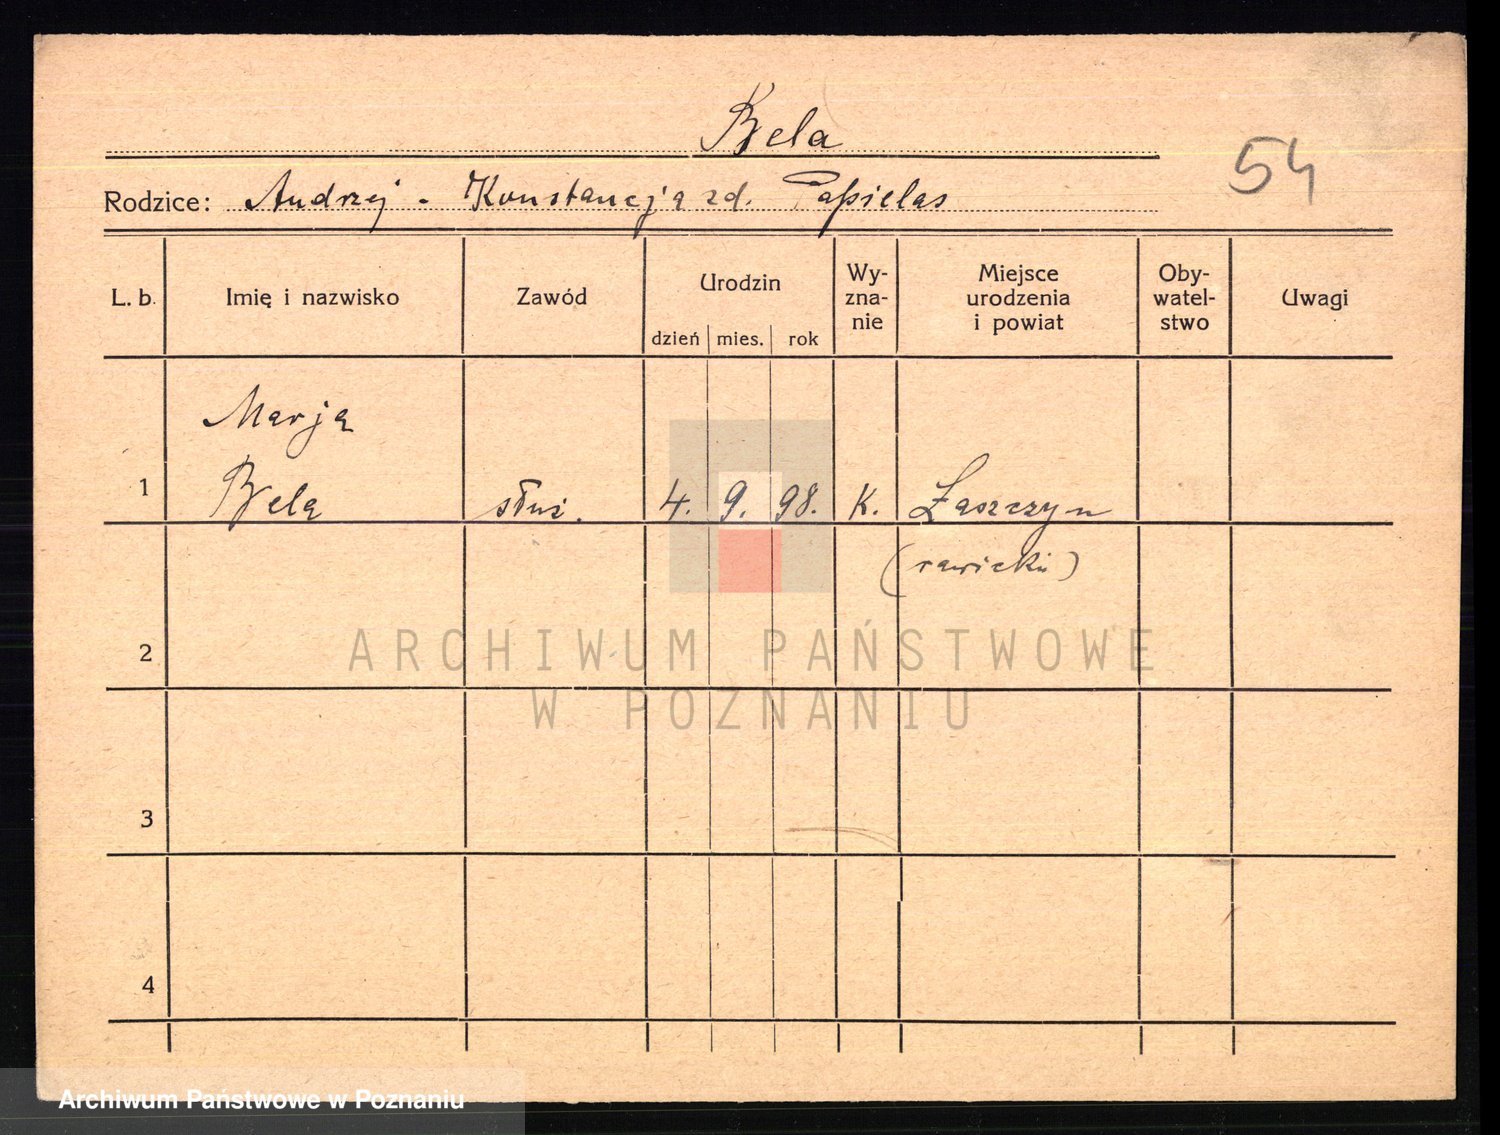 Bela
54
Rodzice: Andrzej - Konstancja zd.
L. b. Imię i nazwisko Zawód Urodzin dzień mies. rok Wy-zna-nie Miejsce urodzenia i powiat Oby-watel-stwo Uwagi
Marja
1 Bela służ. 4. 9. 98. K. Łaszczyn
(rawicki)
2
ARCHIWUM PAŃSTWOWE
W POZNANIU
3
4
Archiwum Państwowe w Poznaniu